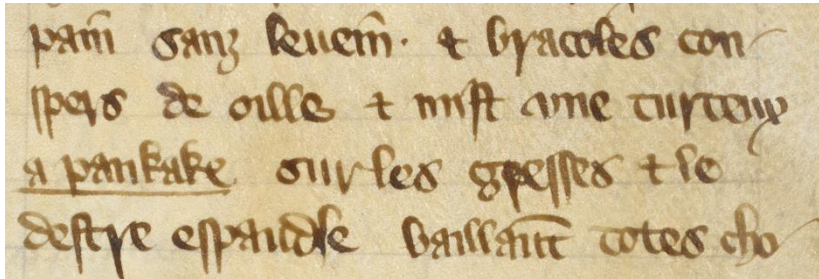 pain sanz leuem̄. ⁊ bracoles con-
spers de oille ⁊ mist vne turteux
a pankake sur les gresses ⁊ le
destre espaudle baillant totes cho-